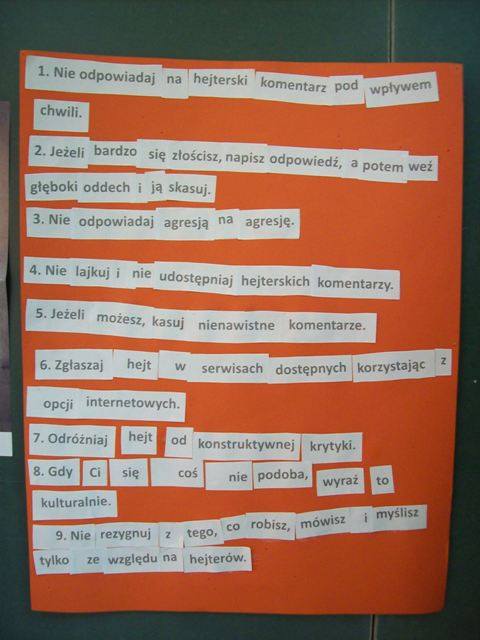 1. Nie odpowiadaj na hejterski komentarz pod wpływem
chwili.
2. Jeżeli bardzo się złościsz, napisz odpowiedź, a potem weź
głęboki oddech i ją skasuj.
3. Nie odpowiadaj agresją na agresję.
4. Nie lajkuj i nie udostępniaj hejterskich komentarzy.
5. Jeżeli możesz, kasuj nienawistne komentarze.
6. Zgłaszaj hejt w serwisach dostępnych korzystając z
opcji internetowych.
7. Odróżniaj hejt od konstruktywnej krytyki.
8. Gdy Ci się coś nie podoba, wyraź to
kulturalnie.
9. Nie rezygnuj z tego, co robisz, mówisz i myślisz
tylko ze względu na hejterów.